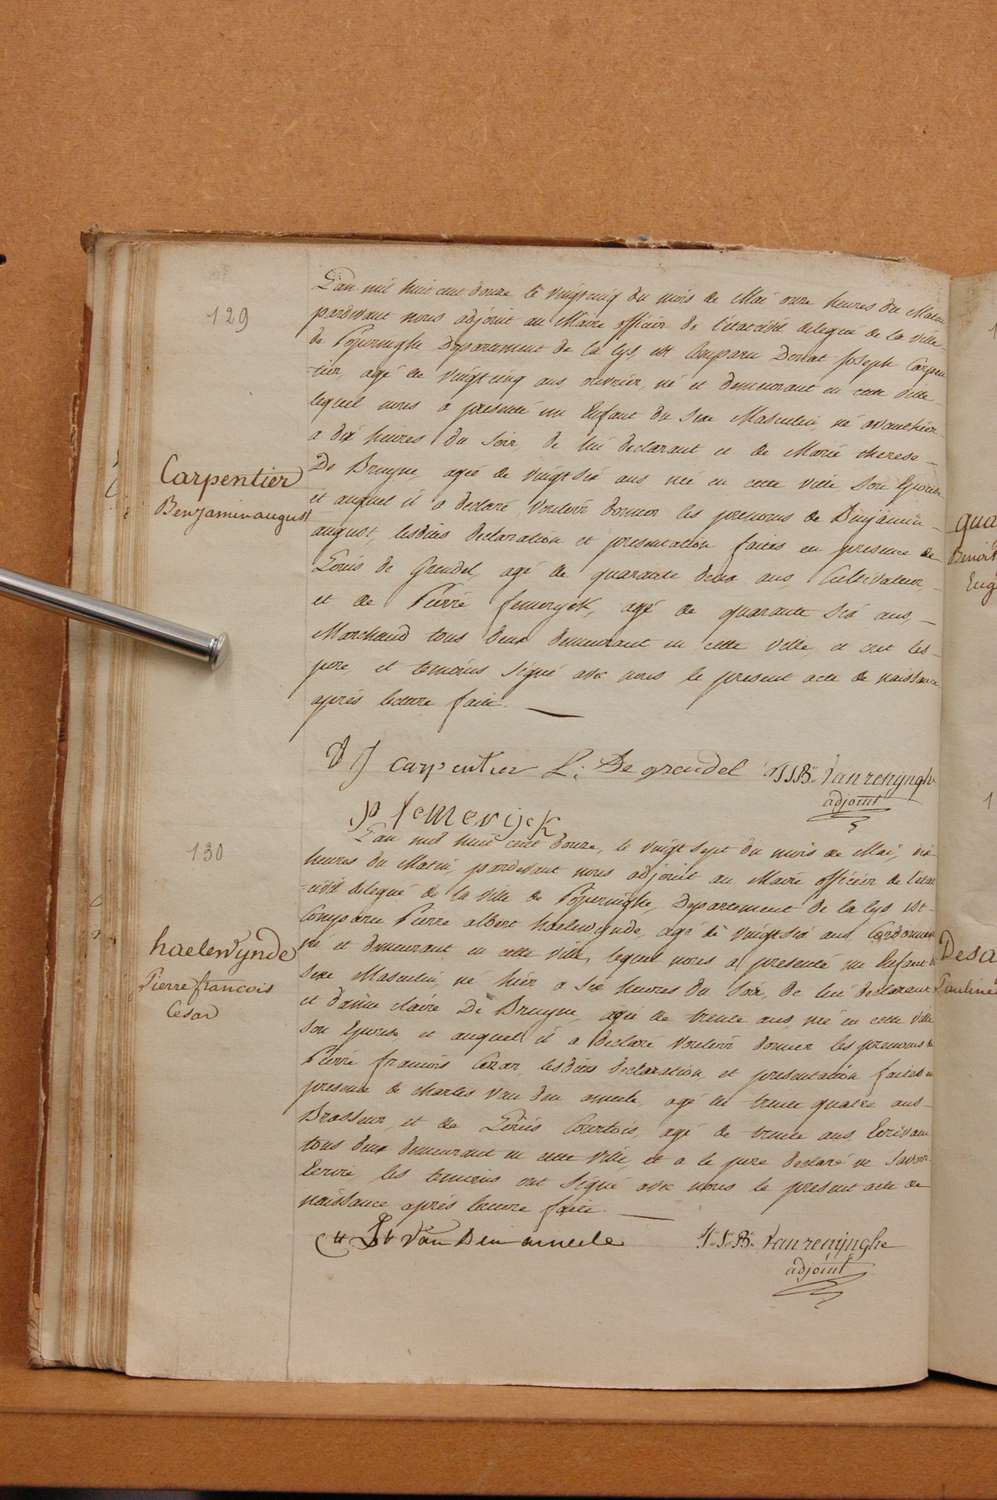 129
L'an mil huit cent douze le vingtcinq du mois de Mai onze heures du Matin
pardevant nous adjoint au Maire officier de l'état civil delegué de la ville
de Poperinghe Departement de la Lys, est Comparu Donat Joseph Carpen
-tier, agé de vingtcinq ans ouvrier, né et demeurant en cette ville
lequel nous a presenté un Enfant du sexe Masculin, né avanthier
a dix heures du Soir, de lui declarant et de Marie therese
De Bruyne, agée de vingt six ans née en cette ville Son Epouse
Carpentier
Benjamin august
et auquel il a declaré vouloir donner les prenoms de Benjamin
august, lesdites declaration et presentation faites en presence de
Louis de Grendel, agé de quarante deux ans, Cultivateur,
et de Pierre femeryck, agé de quarante six ans,
Marchand tous deux demeurant en cette ville, et ont les
pere, et temoins signé avec nous le present acte de naissance
après lecture faite.
D J carpentier L: De grendel J.J.B. Vanrenynghe
adjoint
p femerijck
130
L'an mil huit cent douze, le vingt sept du mois de Mai, dix
heures du Matin, pardevant nous adjoint au Maire officier de l'etat
-civil delegué de la ville de Poperinghe, Departement de la Lys est
Comparu Pierre albert haelewynde, agé de vingt six ans Cordonnier
haelewynde
Pierre francois
Cesar
né et demeurant en cette ville, lequel nous a presenté un Enfant du
sexe Masculin, né hier a six heures du Soir, de lui declarant
et d'anne claire De Bruyne, agée de trente ans, née en cette ville
son Epouse, et auquel il a declaré vouloir donner les prenoms de
Pierre francois Cezar, lesdites declaration et presentation faites en
presence de charles van den ameele, agé de trente quatre ans
Brasseur, et de Louis Courtois, agé de trente ans Ecrivain
tous deux demeurant en cette ville, et a le pere declaré ne savoir
Ecrire, les temoins ont signé avec nous le present acte de
naissance après lecture faite.
Van Den ameele J.J.B. Vanrenynghe
adjoint
qua
Benoit
Eug
Desa
Pauline